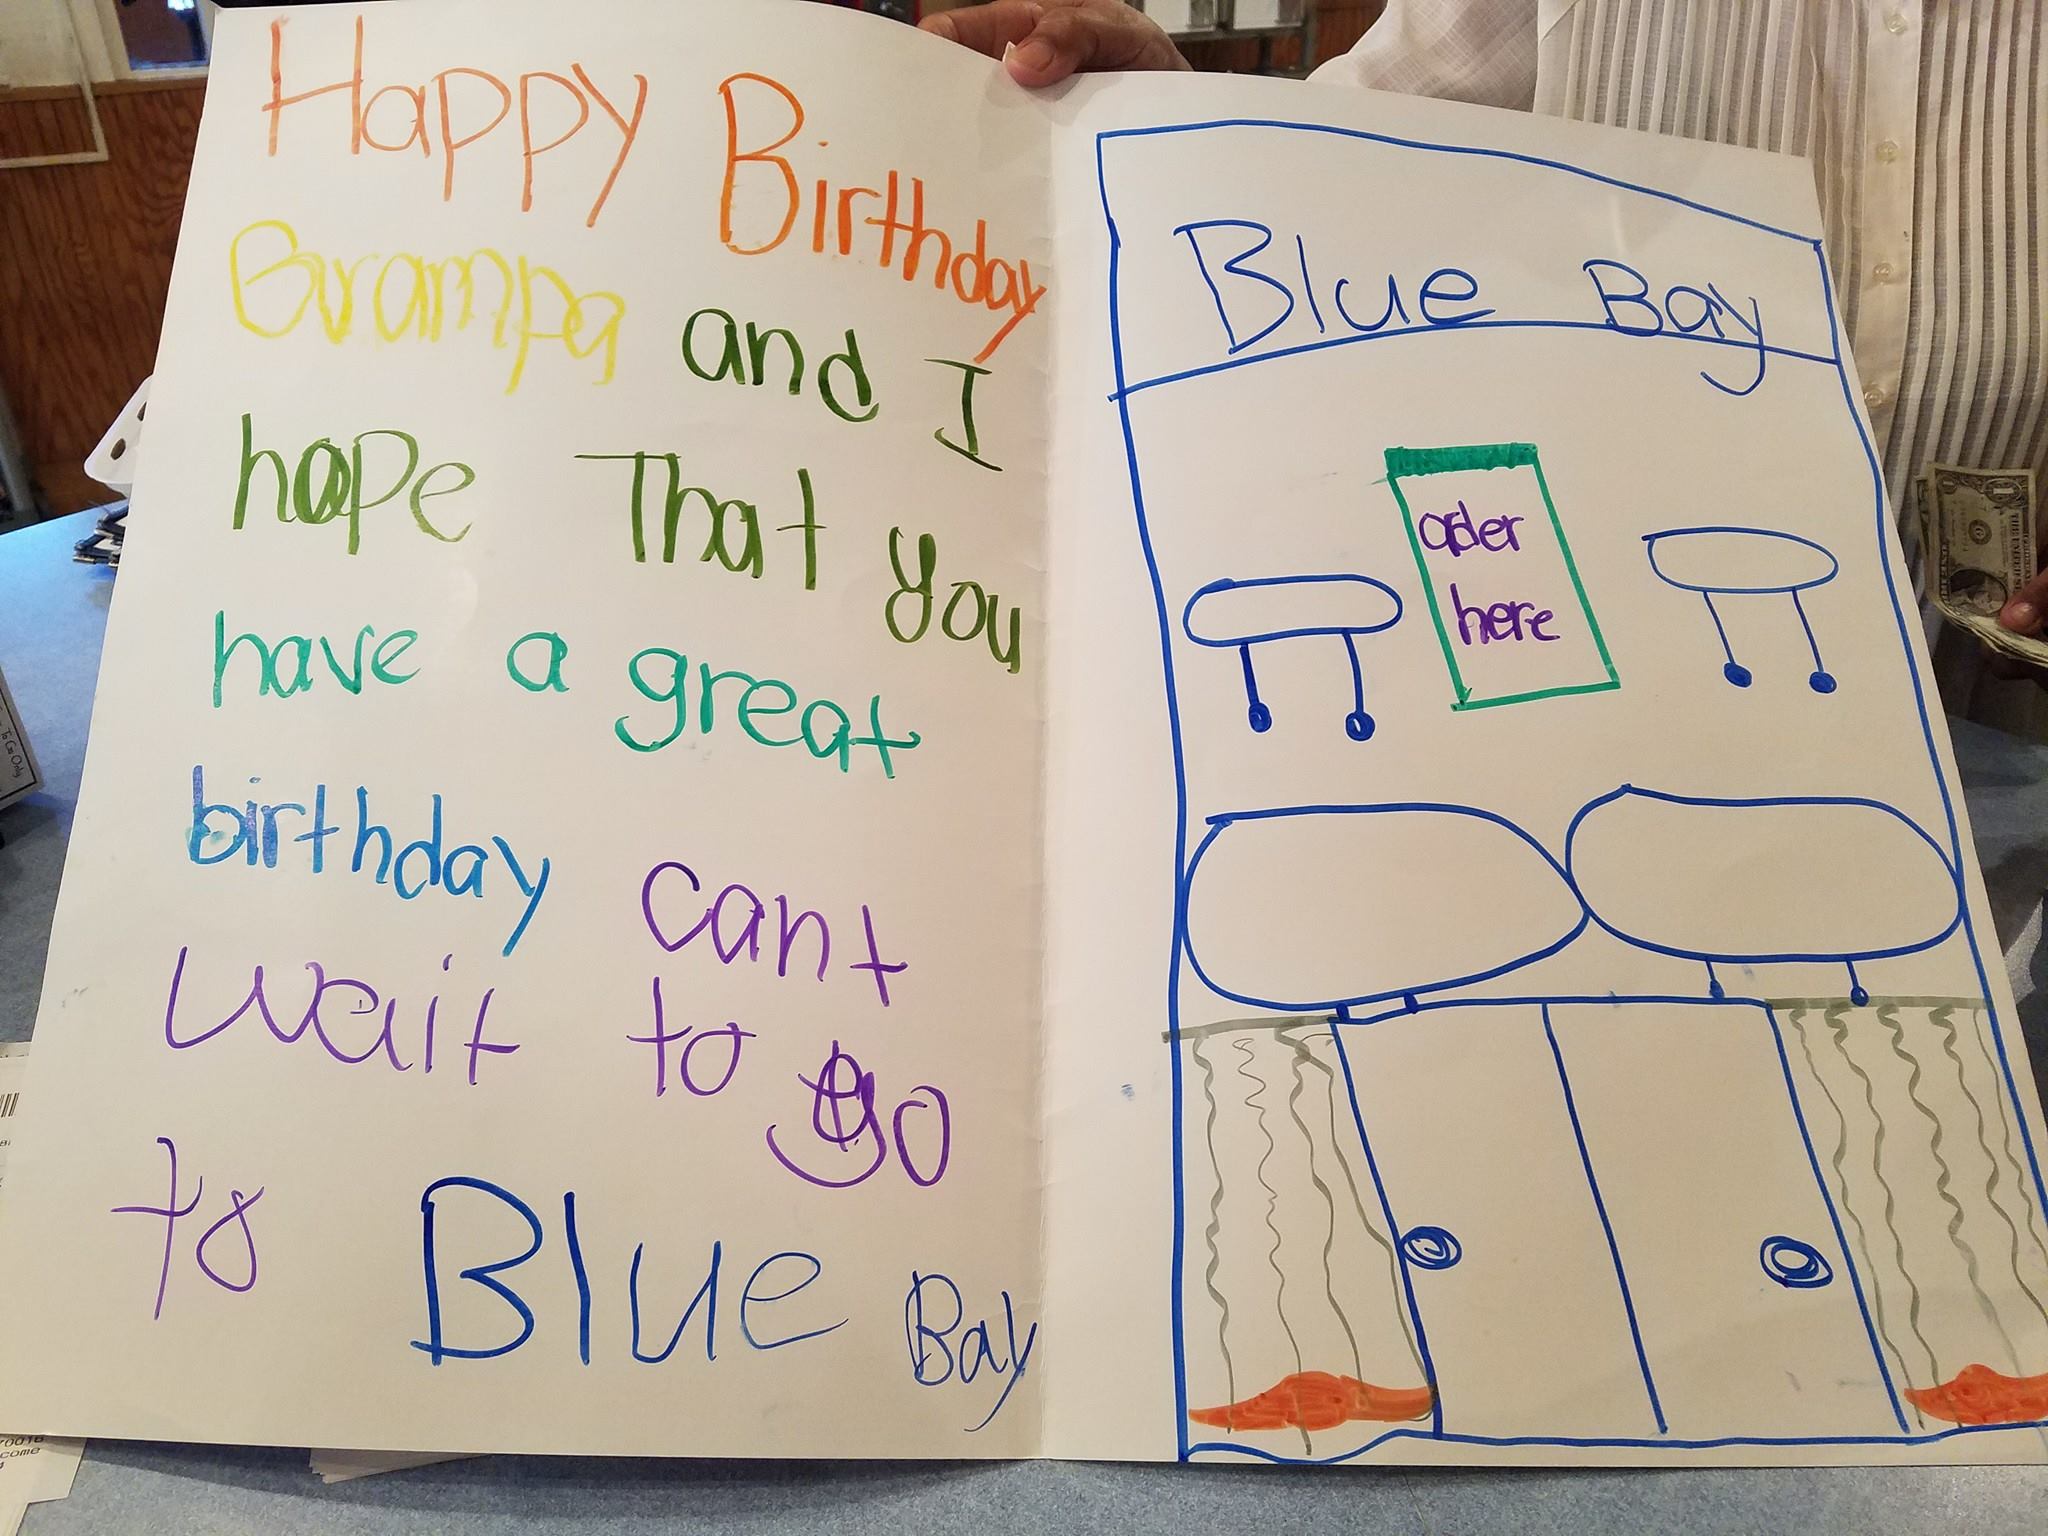 Happy Birthday
Grampa and I
hope That you
have a great
birthday cant
wait to go
to Blue Bay
Blue Bay
order
here
To Go Only
come